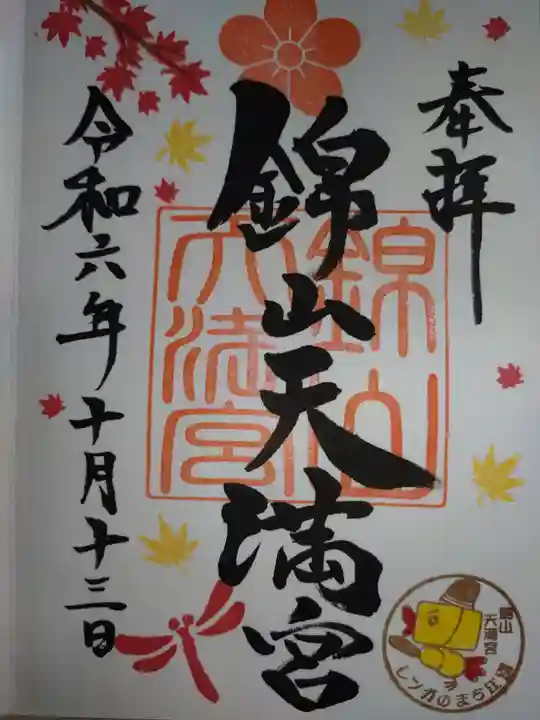 奉拝
錦山天満宮
錦山天満宮
令和六年十月十三日
錦山
天満宮
レンガのまち江別